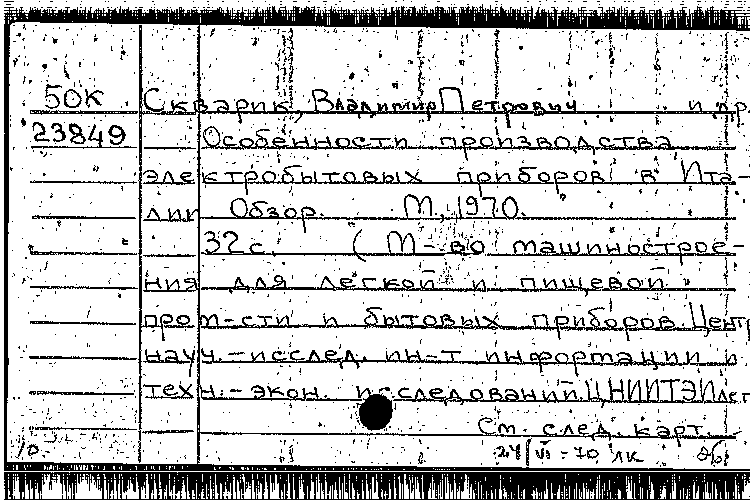 50К Скварик, Владимир Петрович и др.
23849 Особенности производства
электробытовых приборов в Ита-
лии Обзор. М., 1970.
32 с. (М-во машинострое-
ния для легкой и пищевой
пром-сти и бытовых приборов. Центр.
науч.-исслед. ин-т информации и
техн.-экон. исследований. ЦНИИТЭИлег
См. след. карт.
24/VI-70 ЛК